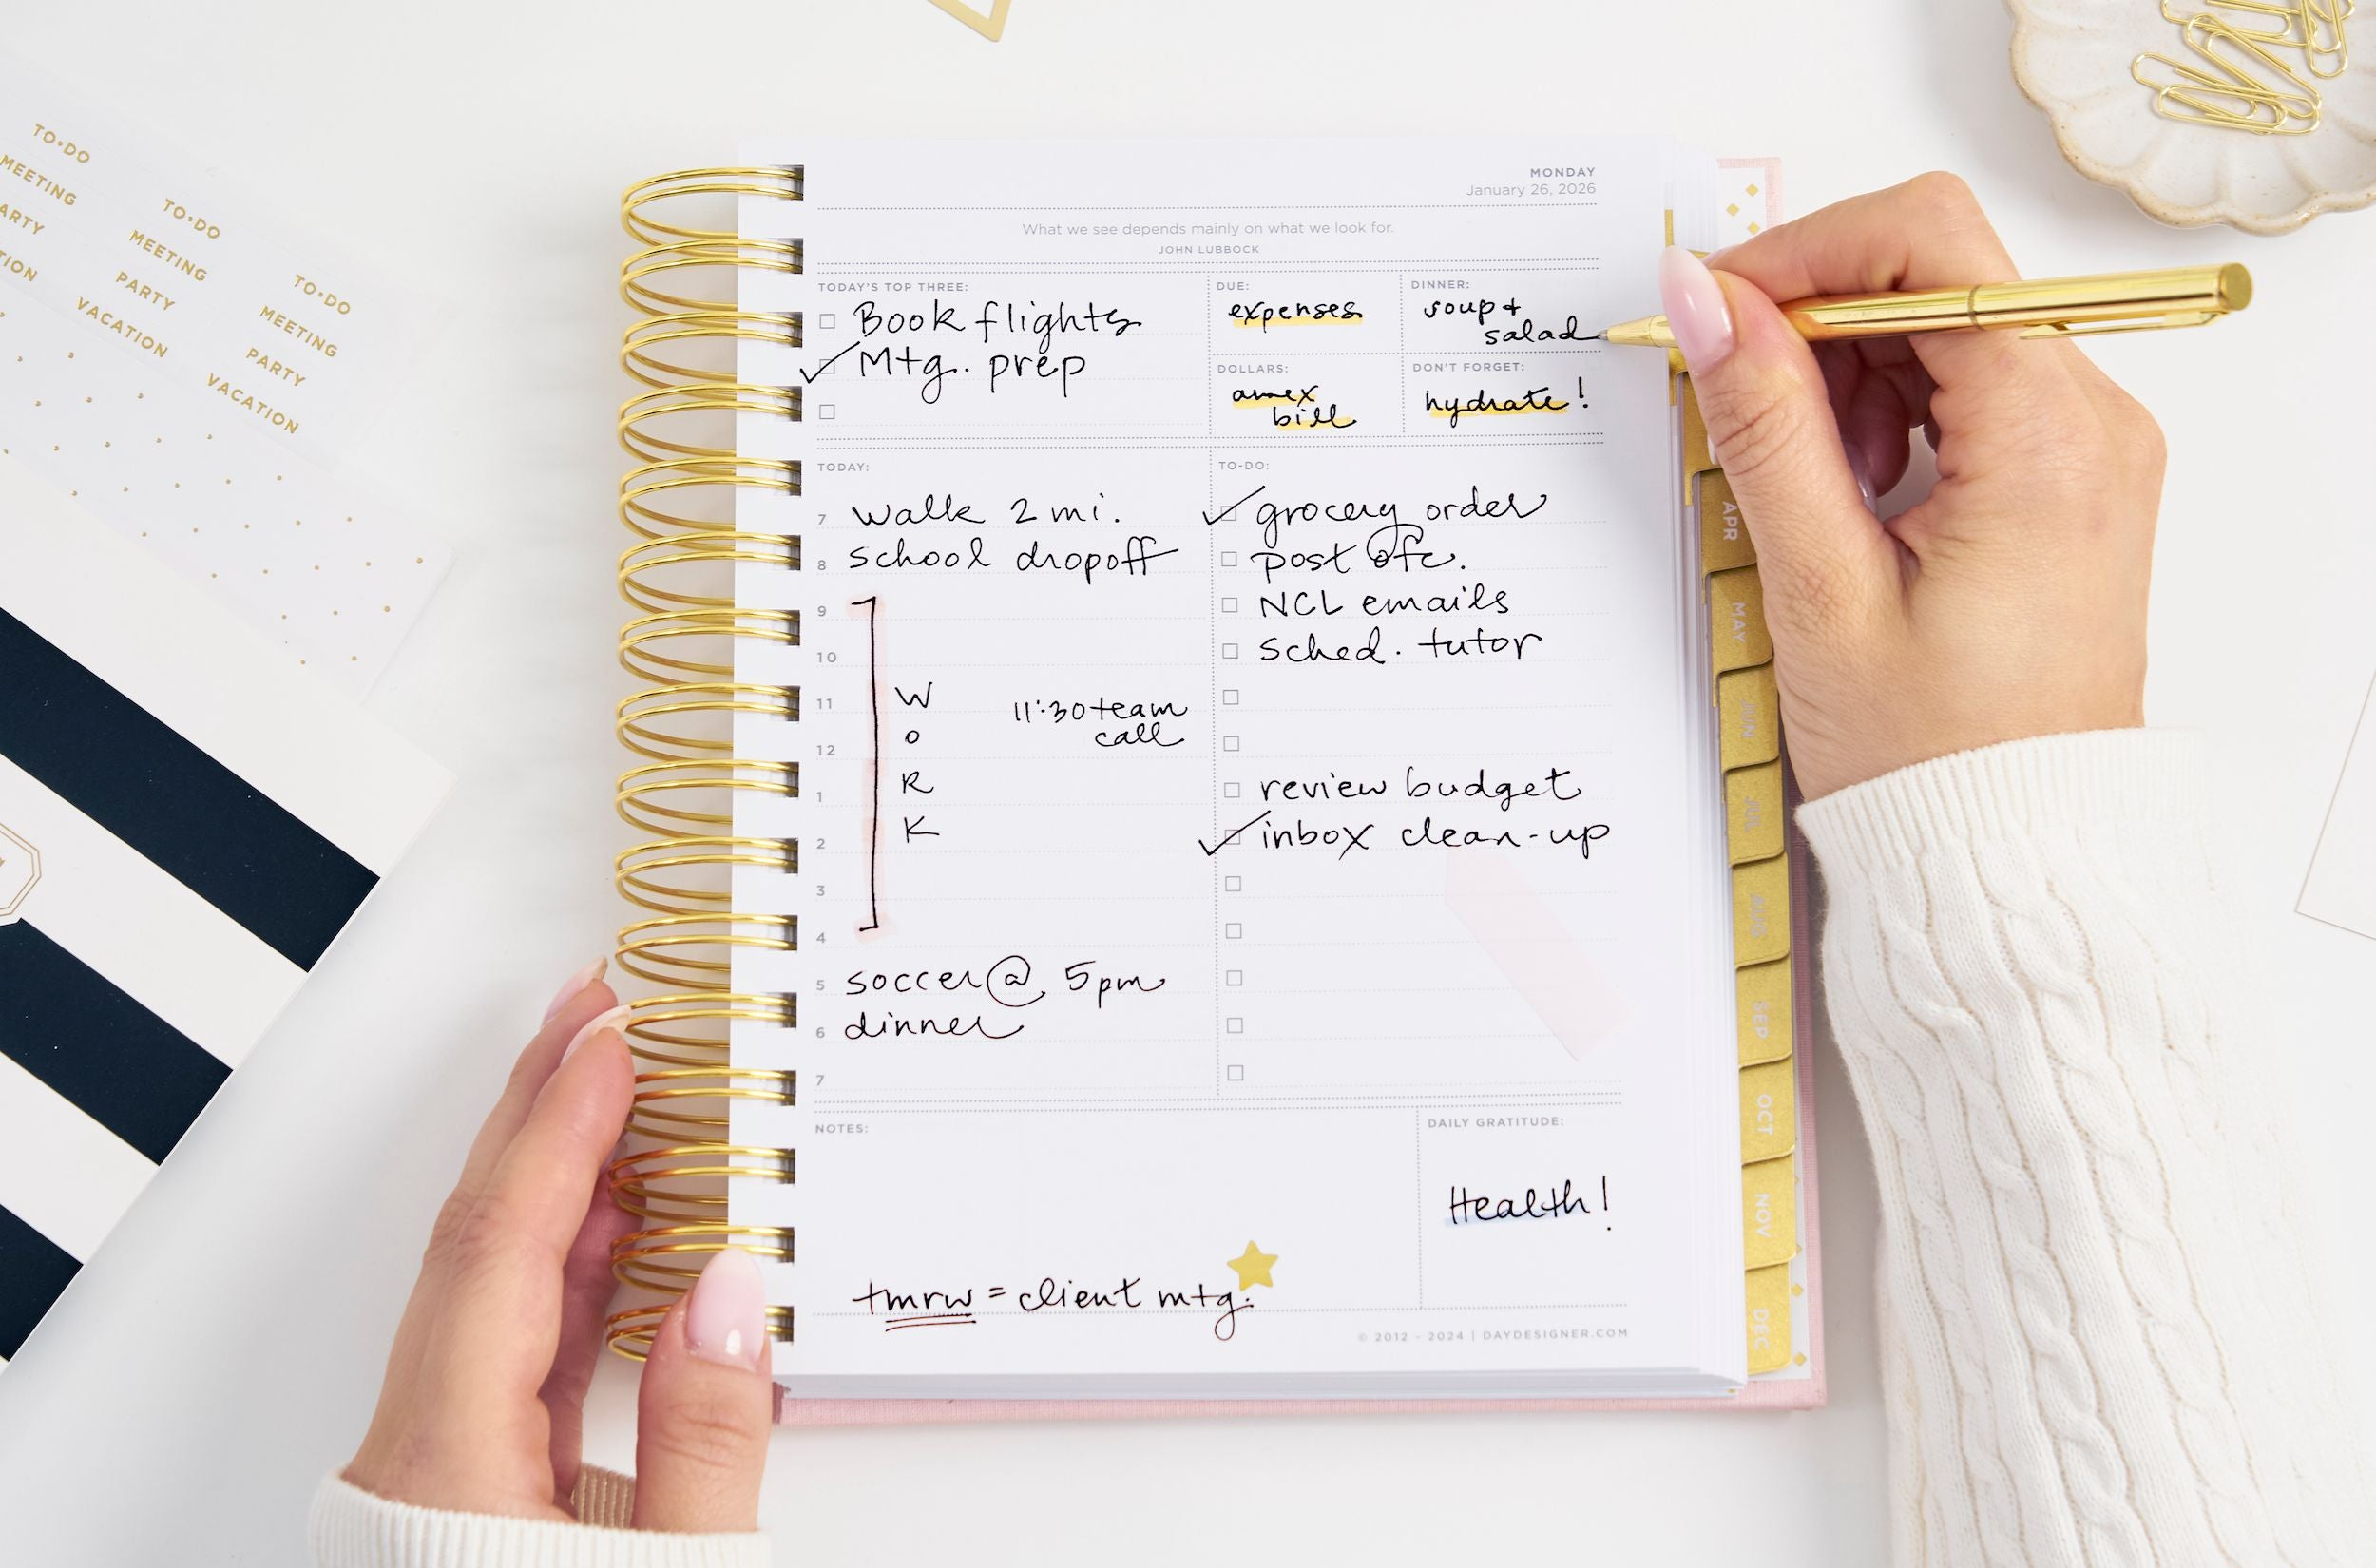 TO•DO
MEETING
ARTY
TION
TO•DO
MEETING
PARTY
VACATION
TO•DO
MEETING
PARTY
VACATION
MONDAY
January 26, 2026
What we see depends mainly on what we look for.
JOHN LUBBOCK
TODAY'S TOP THREE:
Book flights
Mtg. prep
DUE:
expenses
DINNER:
soup +
salad
DOLLARS:
amex
bill
DON'T FORGET:
hydrate!
TODAY:
7 walk 2 mi.
8 school dropoff
9
10
11 W 11:30 team
O call
12
1 R
2 K
3
4
5 soccer @ 5pm
6 dinner
7
TO-DO:
grocery order
post ofc.
NCL emails
sched. tutor
review budget
inbox clean-up
NOTES:
tmrw = client mtg.
DAILY GRATITUDE:
Health!
© 2012 - 2024 | DAYDESIGNER.COM
APR
MAY
JUN
JUL
AUG
SEP
OCT
NOV
DEC